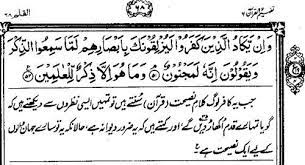 القلم ۶۸
وَإِن يَكَادُ الَّذِينَ كَفَرُوا لَيُزْلِقُونَكَ بِأَبْصَارِهِمْ لَمَّا سَمِعُوا الذِّكْرَ
وَيَقُولُونَ إِنَّهُ لَمَجْنُونٌ ۝ وَمَا هُوَ إِلَّا ذِكْرٌ لِّلْعٰلَمِينَ ۝
جب یہ کافر لوگ کلام نصیحت (قرآن) سُنتے ہیں تو تمہیں ایسی نظروں سے دیکھتے ہیں کہ
گویا تمہارے قدم اکھاڑ دیں گے اور کہتے ہیں کہ یہ ضرور دیوانہ ہے، حالانکہ یہ تو سارے جہان والوں
کے لیے ایک نصیحت ہے